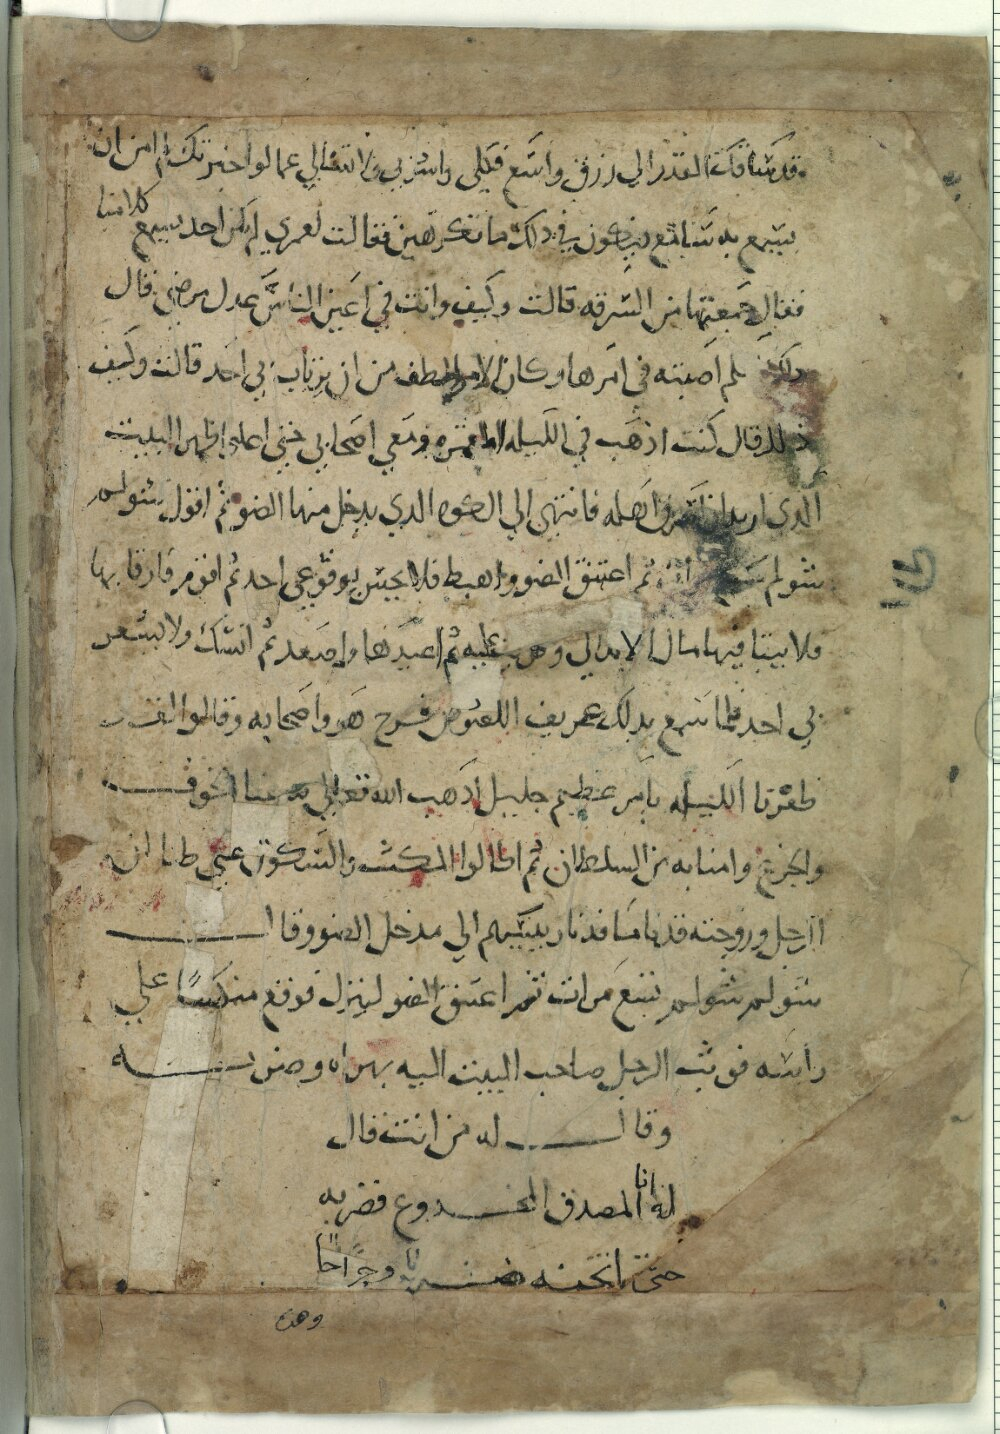 قد ساقك القدر الي رزق واسع فكلي واشربي ولا تسالي عما لو اخبرتك لم امن ان
يسمع به سامع فيكون في ذلك ما تكرهين فقالت لعمري لم يكن احد يسمع كلامنا
فقال جمعتها من السرقه قالت وكيف وانت في اعين الناس عدل مرضي قال
ذلك لعلم اصبته في امرها وكان الامر الطف من ان يرتاب بي احد قالت وكيف
ذلك قال كنت اذهب في الليله المقمره ومعي اصحابي حتي اعلوا ظهر البيت
الذي اريد ان اسرق اهله فانتهي الي الكوه الذي يدخل منها الضو ثم اقول شولم
شولم سبع ثم اعتنق الضو واهبط فلا يحس بوقوعي احد ثم اقوم فارقا بها
فلا يبقا فيها مال الا بدا لي ثم اعيدها واصعد ثم انسك ولا يشعر
بي احد فلما سمع بذلك عريف اللصوص فرح هو واصحابه وقالوا لقد
ظفرنا الليله بامر عظيم جليل اذهب الله تعالي به عنا الخوف
والجزع وامنا به من السلطان ثم اطالوا المكث والسكون حتي ظنوا ان
الرجل وزوجته قد ناما فدنا ربيبهم الي مدخل الضو وقال
شولم شولم سبع مرات ثم اعتنق الضو لينزل فوقع منكسا علي
راسه فوثب الرجل صاحب البيت اليه بهراوه وضربه
وقال له من انت قال
له انا المصدق المخدوع فضربه
حتي اثخنه ضربا وجراحا
وهذه